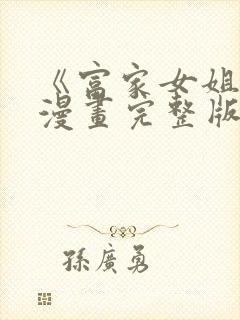 《富家女姐
漫畫完整版
孫廣勇